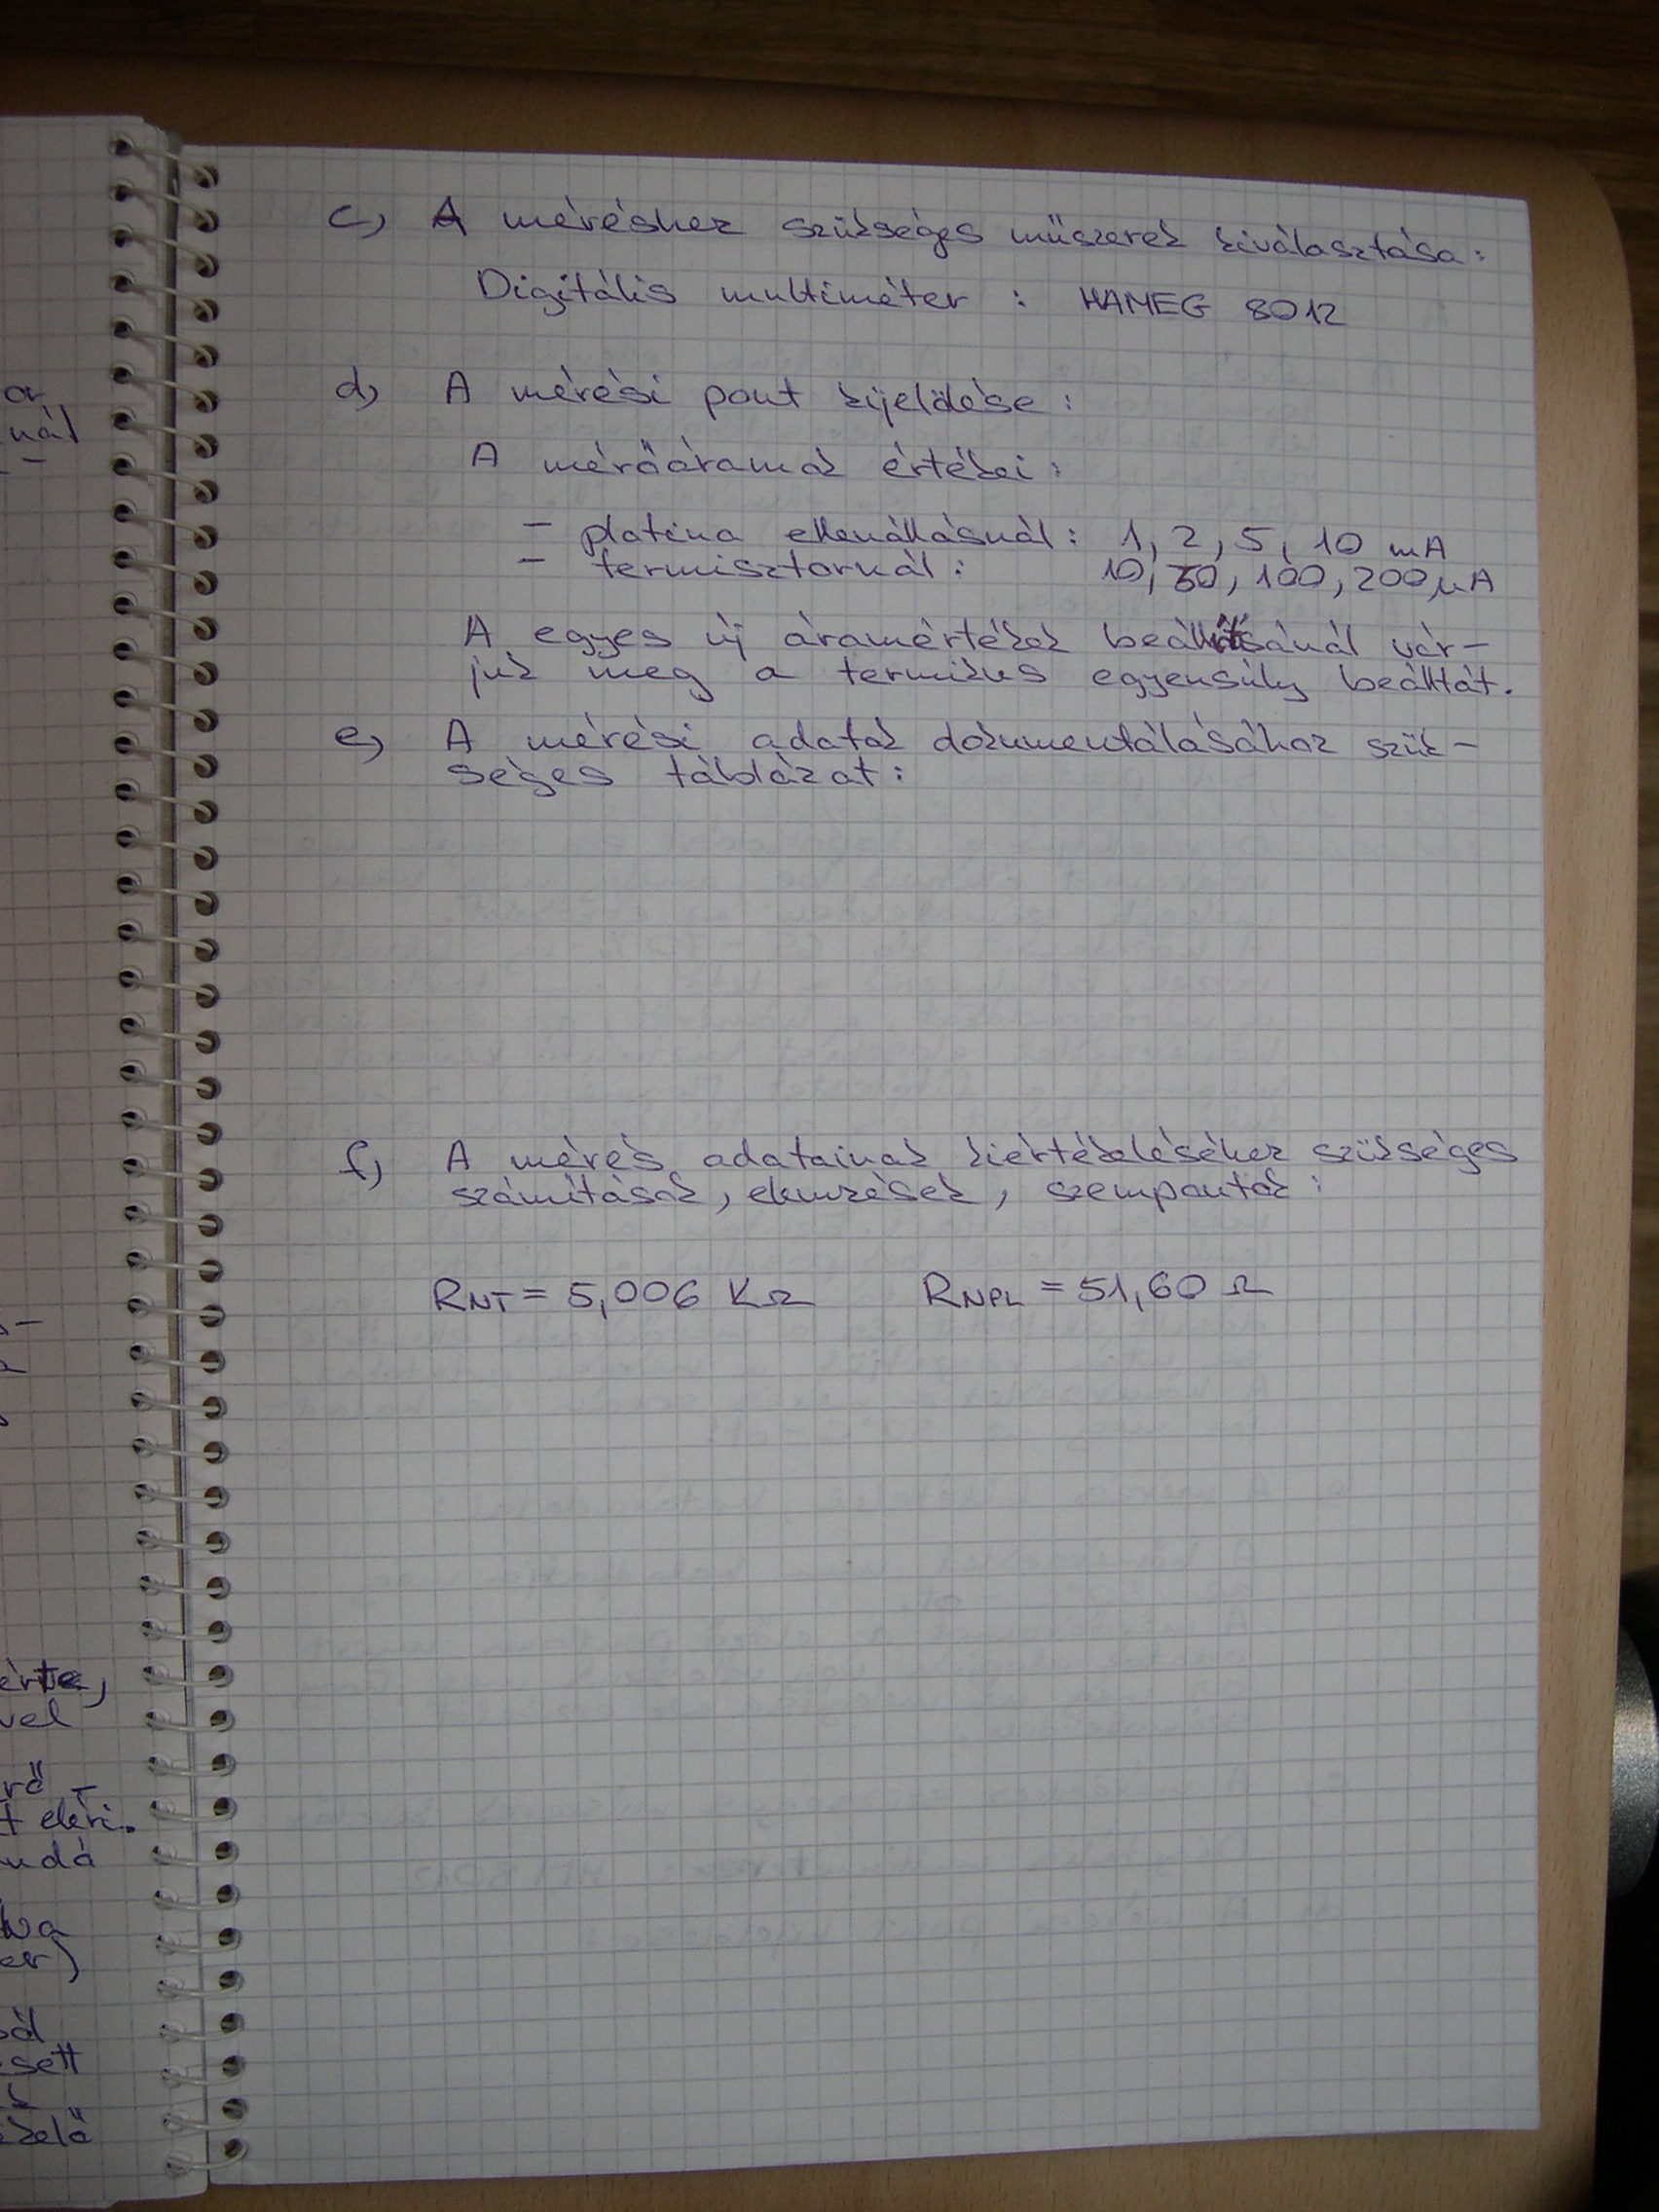 c) A méréshez szükséges műszerek kiválasztása:
Digitális multiméter : HAMEG 8012
d) A mérési pont kijelölése:
A mérőáramok értékei:
- platina ellenállásnál: 1, 2, 5, 10 mA
- termisztornál: 10, 50, 100, 200 μA
A egyes új áramértékek beállításánál vár-
juk meg a termikus egyensúly beálltát.
e) A mérési adatok dokumentálásához szük-
séges táblázat:
f) A mérés adatainak kiértékeléséhez szükséges
számítások, elemzések, szempontok:
RNT = 5,006 KΩ RNPL = 51,60 Ω
or
nál
érte,
vel
rő -
t eléri.
udá
va
er)
ól
sett
kelő